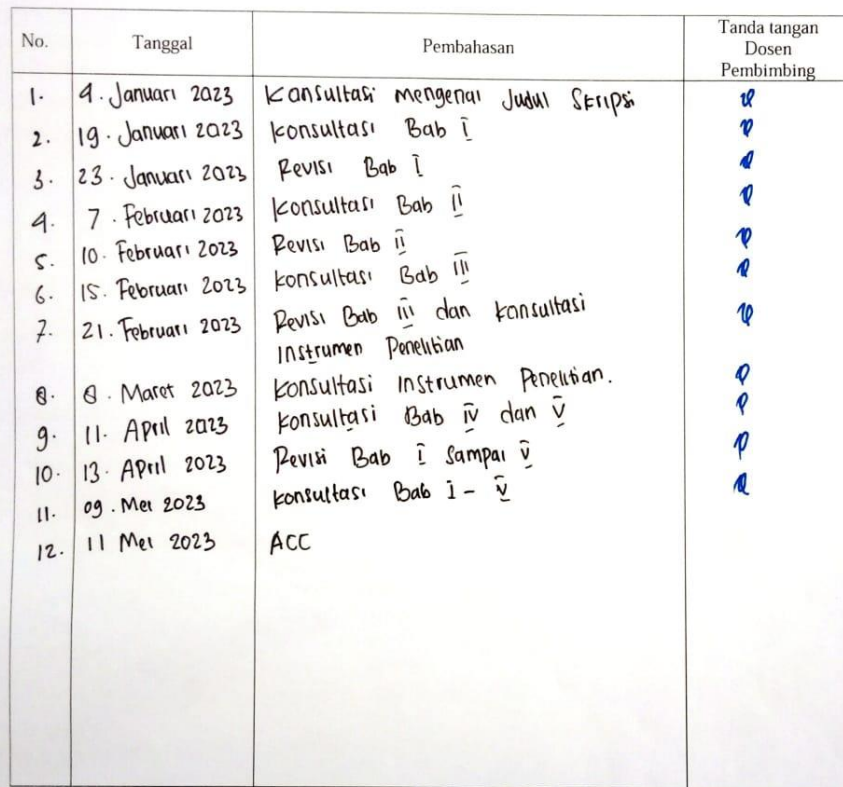 No. Tanggal Pembahasan Tanda tangan Dosen Pembimbing
1. 4. Januari 2023 Konsultasi Mengenai Judul Skripsi
2. 19. Januari 2023 Konsultasi Bab I
3. 23. Januari 2023 Revisi Bab I
4. 7. Februari 2023 Konsultasi Bab II
5. 10. Februari 2023 Revisi Bab II
6. 15. Februari 2023 Konsultasi Bab III
7. 21. Februari 2023 Revisi Bab III dan Konsultasi
Instrumen Penelitian
8. 8. Maret 2023 Konsultasi Instrumen Penelitian.
9. 11. April 2023 Konsultasi Bab IV dan V
10. 13. April 2023 Revisi Bab I Sampai V
11. 09. Mei 2023 Konsultasi Bab I - V
12. 11 Mei 2023 ACC